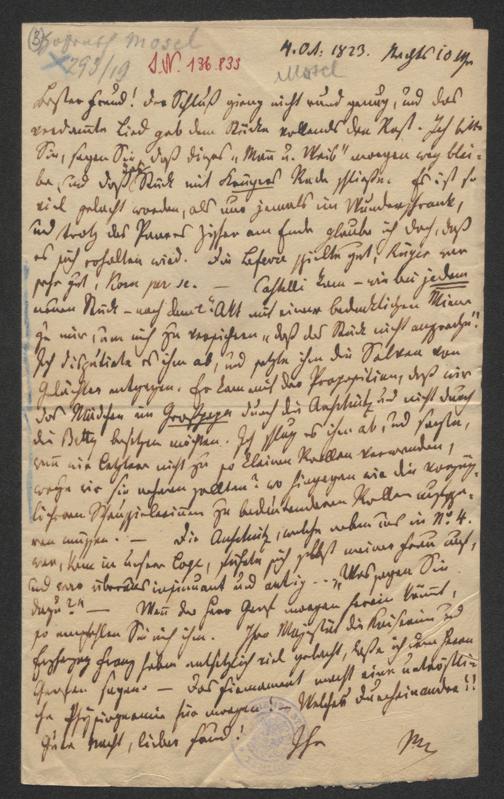 (3) Hofrath Mosel
293/19 I.N. 136.833 4. Oct. 1823. Nachts 10 Uhr
Mosel
Bester Freund! Der Schluß gieng nicht rund genug, und das
verdammte Lied gab dem Stücke vollends den Rest. Ich bitte
Sie, sagen Sie, daß dieses „Mann u. Weib" morgen weg blei-
be, und daß das Stück mit Krügers Rede schließe. Es ist so
viel gelacht worden, als nur jemals im Wunderschrank,
und trotz des Paares Zischer am Ende glaube ich doch, daß
es sich erhalten wird. Die Lefevre spielte gut, Krüger war
sehr gut, Korn per se. — Castelli kam – wie bei jedem
neuen Stück – nach dem 2t Akt mit einer bedenklichen Miene
zu mir, um mich zu versichern, „daß das Stück nicht anspreche."
Ich disputirte es ihm ab, und setzte ihm die Salven von
Gelächter entgegen. Er kam mit der Proposition, daß wir
das Mädchen im durch die Anschütz und nicht durch
die Betty besetzen möchten. Ich schlug es ihm ab, und sagte,
wenn wir letztere nicht zu so kleinen Rollen verwenden,
wozu wir sie nehmen sollten? wo hingegen wir die vorzüg-
licheren Schauspielerinnen zu bedeutenderen Rollen
ren müssen. — Die Anschütz, welche neben uns in No. 4.
war, kam in unsere Loge, führte sich selbst meiner Frau auf,
und war überaus insinuant und artig... „Was sagen Sie
dazu?" — Wenn der Herr Graf morgen herein kömmt,
so empfehlen Sie mich ihm. Ihre Majestät die Kaiserin und
Erzherzog Franz haben entsetzlich viel gelacht, lasse ich dem Herrn
Grafen sagen. — Das Firmament macht eine
che Physiognomie für morgen! — Welches Durcheinander!!
Gute Nacht, lieber Freund! Ihr M